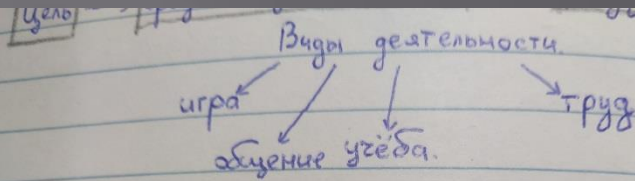 Цель
Виды деятельности.
игра труд
общение учёба.